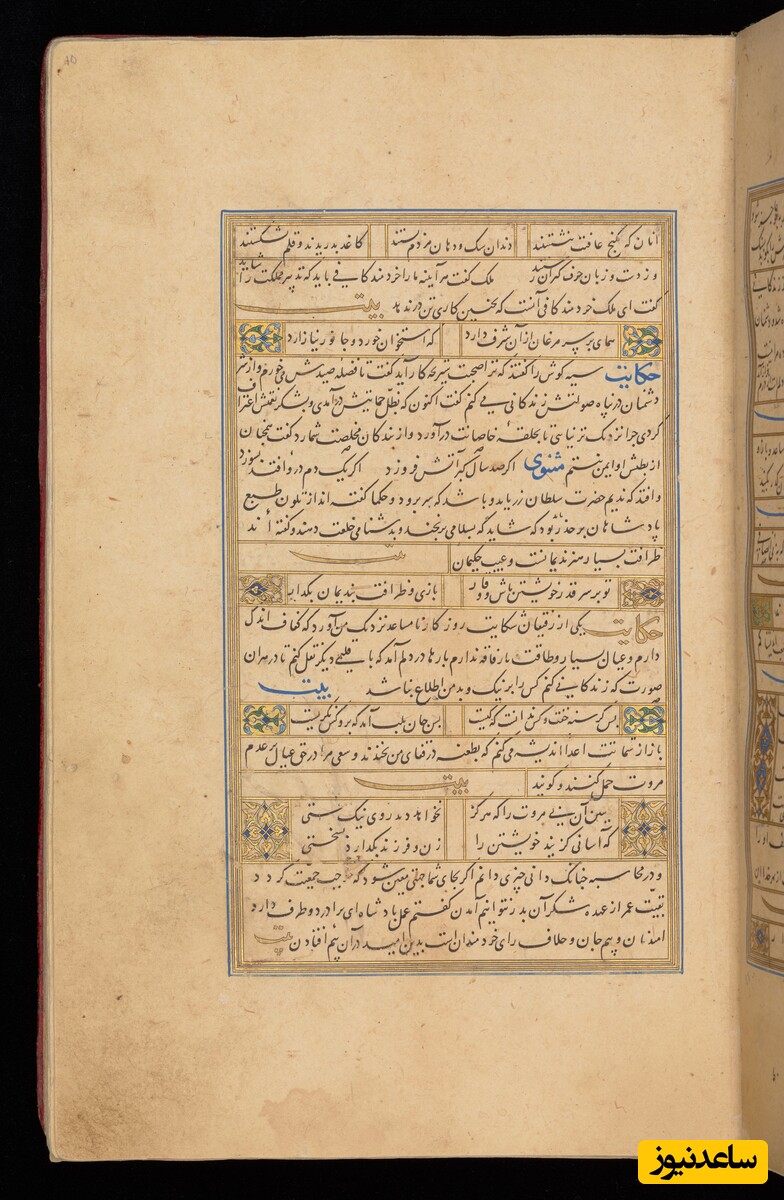 آنان که بکنج عافیت بنشستند دندان سک و دهان مردم بستند کاغذ بدریدند و قلم بشکستند
وز دست و زبان حرف کیران رستند ملک گفت هر آینه ما را خردمند کافی باید که تدبیر مملکت را شاید
گفت ای ملک خردمند کافی آنست که بچنین کاری تن درندهد بیت
همای بر سر مرغان از آن شرف دارد که استخوان خورد و جانور نیازارد
حکایت سیه کوش را گفتند که ترا صحبت شیر بچه کار آید گفت تا فضله صیدش می خورم و از شر
دشمنان در پناه صولتش زندکانی می کنم گفت اکنون که بظل حمایتش درآمدی و بشکر نعمتش اعتراف
کردی چرا نزدیکتر نیایی تا بحلقه خاصانت درآورد و از بندکان مخلصت شمارد گفت همچنان
از بطش او ایمن نیستم مثنوی اکر صد سال کبر آتش فروزد اکر یک دم درو افتد بسوزد
وافتد که ندیم حضرت سلطان زر بیابد و باشد که سر برود و حکما گفته اند از تلون طبع
پادشاهان بر حذر بود که شاید که بسلامی برنجند و بدشنامی خلعت دهند و گفته اند
ظرافت بسیار هنر ندیمانست و عیب حکیمان بیت
تو بر سر قدر خویشتن باش و وقار بازی و ظرافت بندیمان بگذار
حکایت یکی از رفیقان شکایت روزکار نامساعد نزدیک من آورد که کفاف اندک
دارم و عیال بسیار و طاقت بار فاقه ندارم بارها در دلم آمد که با قلیمی دیکر نقل کنم تا در هر آن
صورت که زندکانی کنم کس را بر نیک و بد من اطلاع نباشد بیت
بس گرسنه خفت و کس ندانست که کیست بس جان بلب آمد که برو کس نکریست
باز از شماتت اعدا اندیشه می کنم که بطعنه در قفای من بخندند و سعی مرا در حق عیال بر عدم
مروت حمل کنند و گویند بیت
ببین آن بی مروت را که هرگز نخواهد دید روی نیک بختی
که آسانی گزیند خویشتن را زن و فرزند بگذارد بسختی
و در محاسبه چنانک دانی چیزی دانم اکر بجای شما جهتی معین شود که موجب جمعیت گردد
بقیت عمر از عهده شکر آن بدر نتوانیم آمدن گفتم عمل پادشاه ای برادر دو طرف دارد
امید نان و بیم جان و خلاف رای خردمندان است بدین امید در آن بیم افتادن بیت
ساعدنیوز